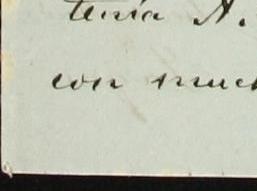 tenía A.
con much